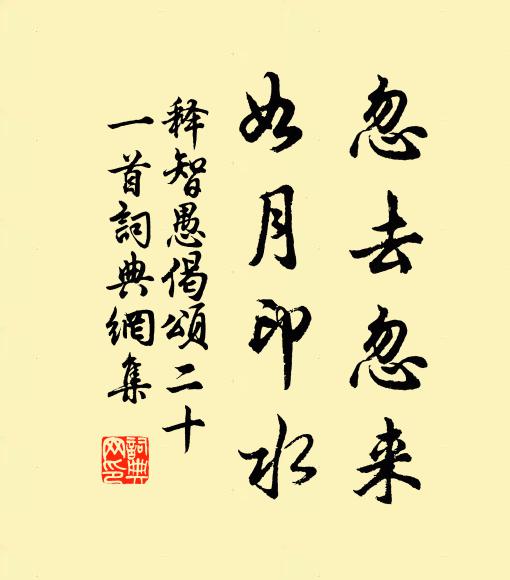 忽去忽来
如月印水
释智愚偈頌二十
一首詞典網集
詞典
网印